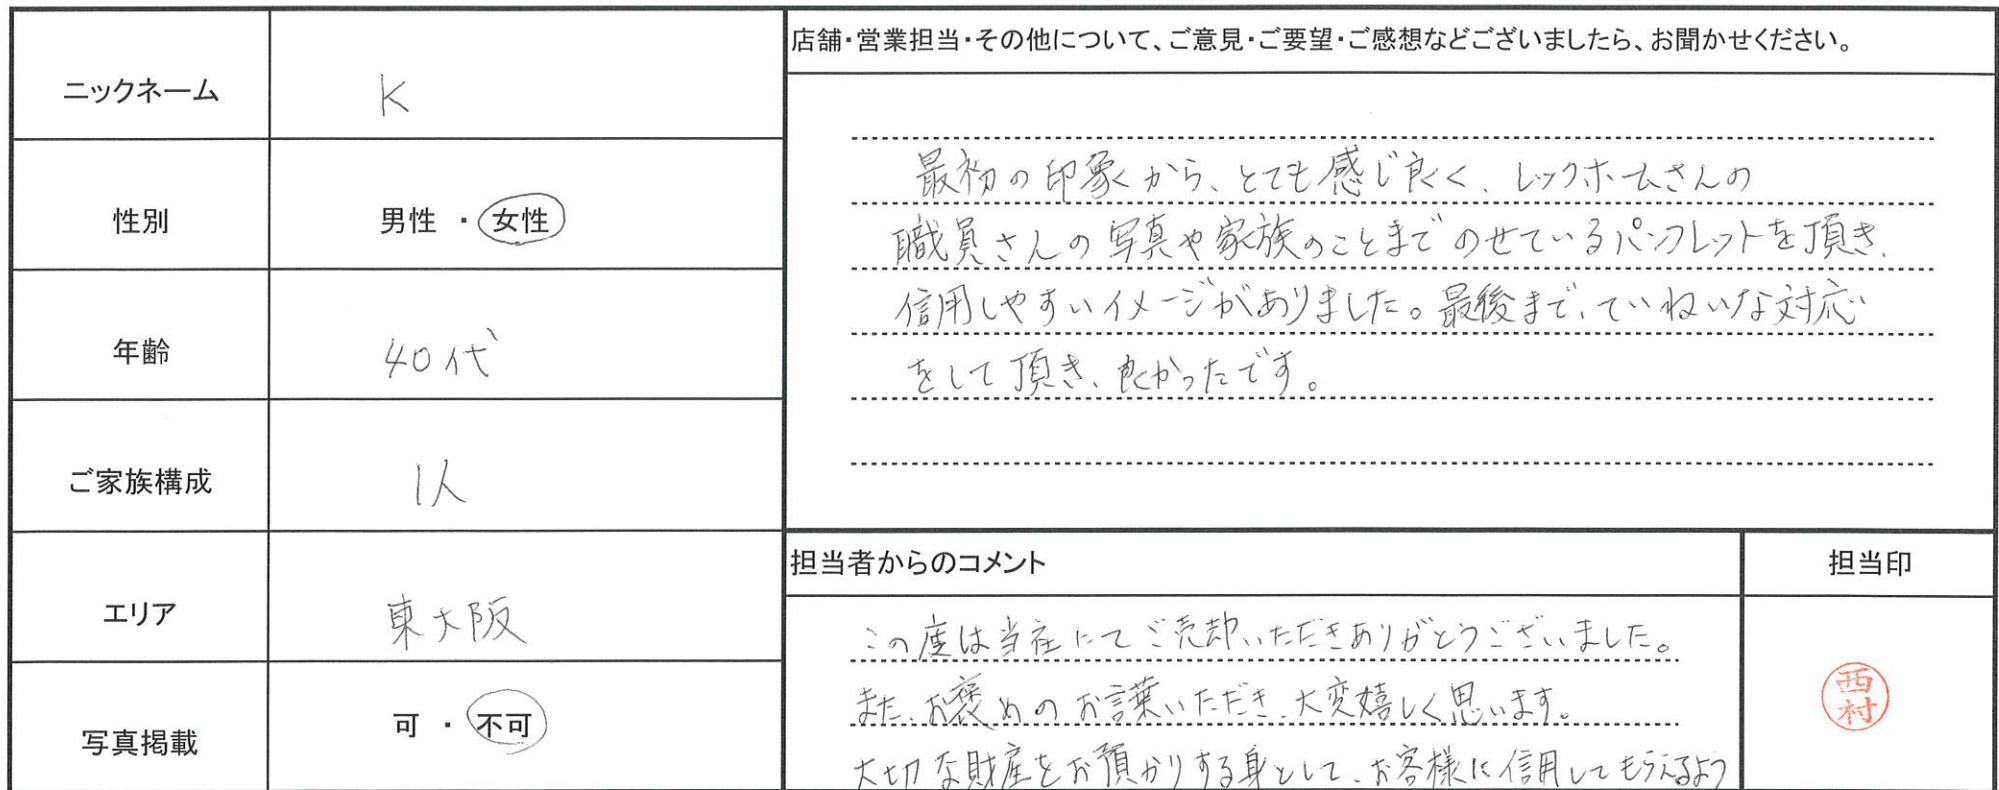 ニックネーム K
性別 男性 ・ 女性
年齢 40代
ご家族構成 1人
エリア 東大阪
写真掲載 可 ・ 不可
店舗・営業担当・その他について、ご意見・ご要望・ご感想などございましたら、お聞かせください。
最初の印象から、とても感じ良く、レックホームさんの
職員さんの写真や家族のことまでのせているパンフレットを頂き、
信用しやすいイメージがありました。最後まで、ていねいな対応
をして頂き、良かったです。
担当者からのコメント
この度は当社にてご売却いただきありがとうございました。
また、お褒めのお言葉いただき、大変嬉しく思います。
大切な財産をお預かりする身として、お客様に信用してもらえるよう
担当印
西村